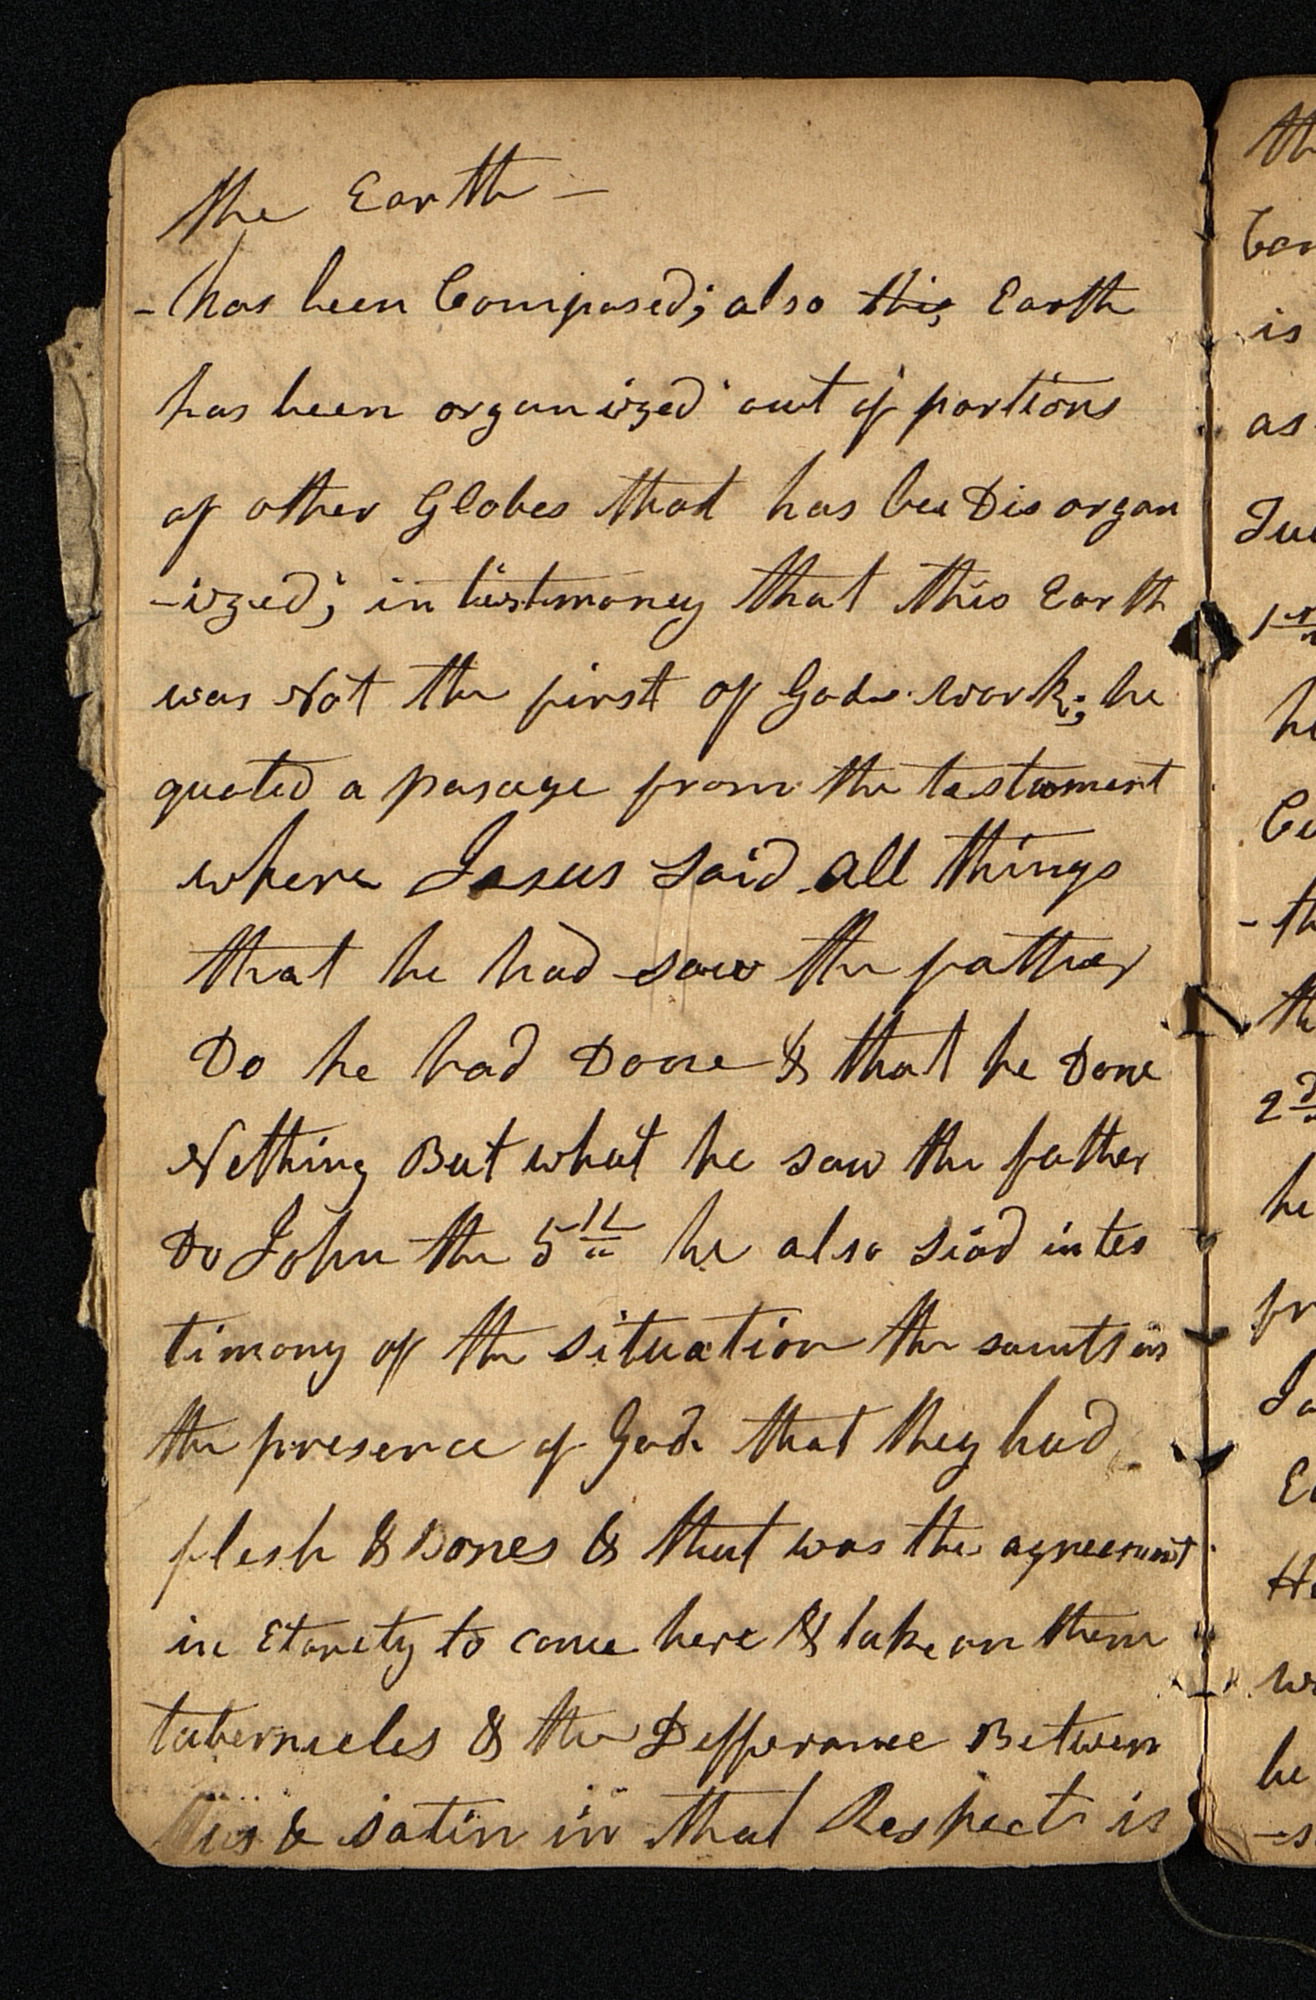 the Earth —
- has been Composed; also this Earth
has been organized out of portions
of other Globes that has bee Disorgan
-ized; in testimoney that this Earth
was Not the first of Gods work; he
quoted a pasage from the testament
where Jesus said all things
that he had saw the father
Do he had Done & that he Done
Nothing But what he saw the father
Do John the 5th he also siad in tes
timony of the situation the saints in
the presence of God that they had
flesh & Bones & that was the agreement
in Etarnity to come here & take on them
tabernicles & the Defferance Between
us & satin in that Respect is
th
is
as
1st
he
- th
the
2d
he
fr
wa
he